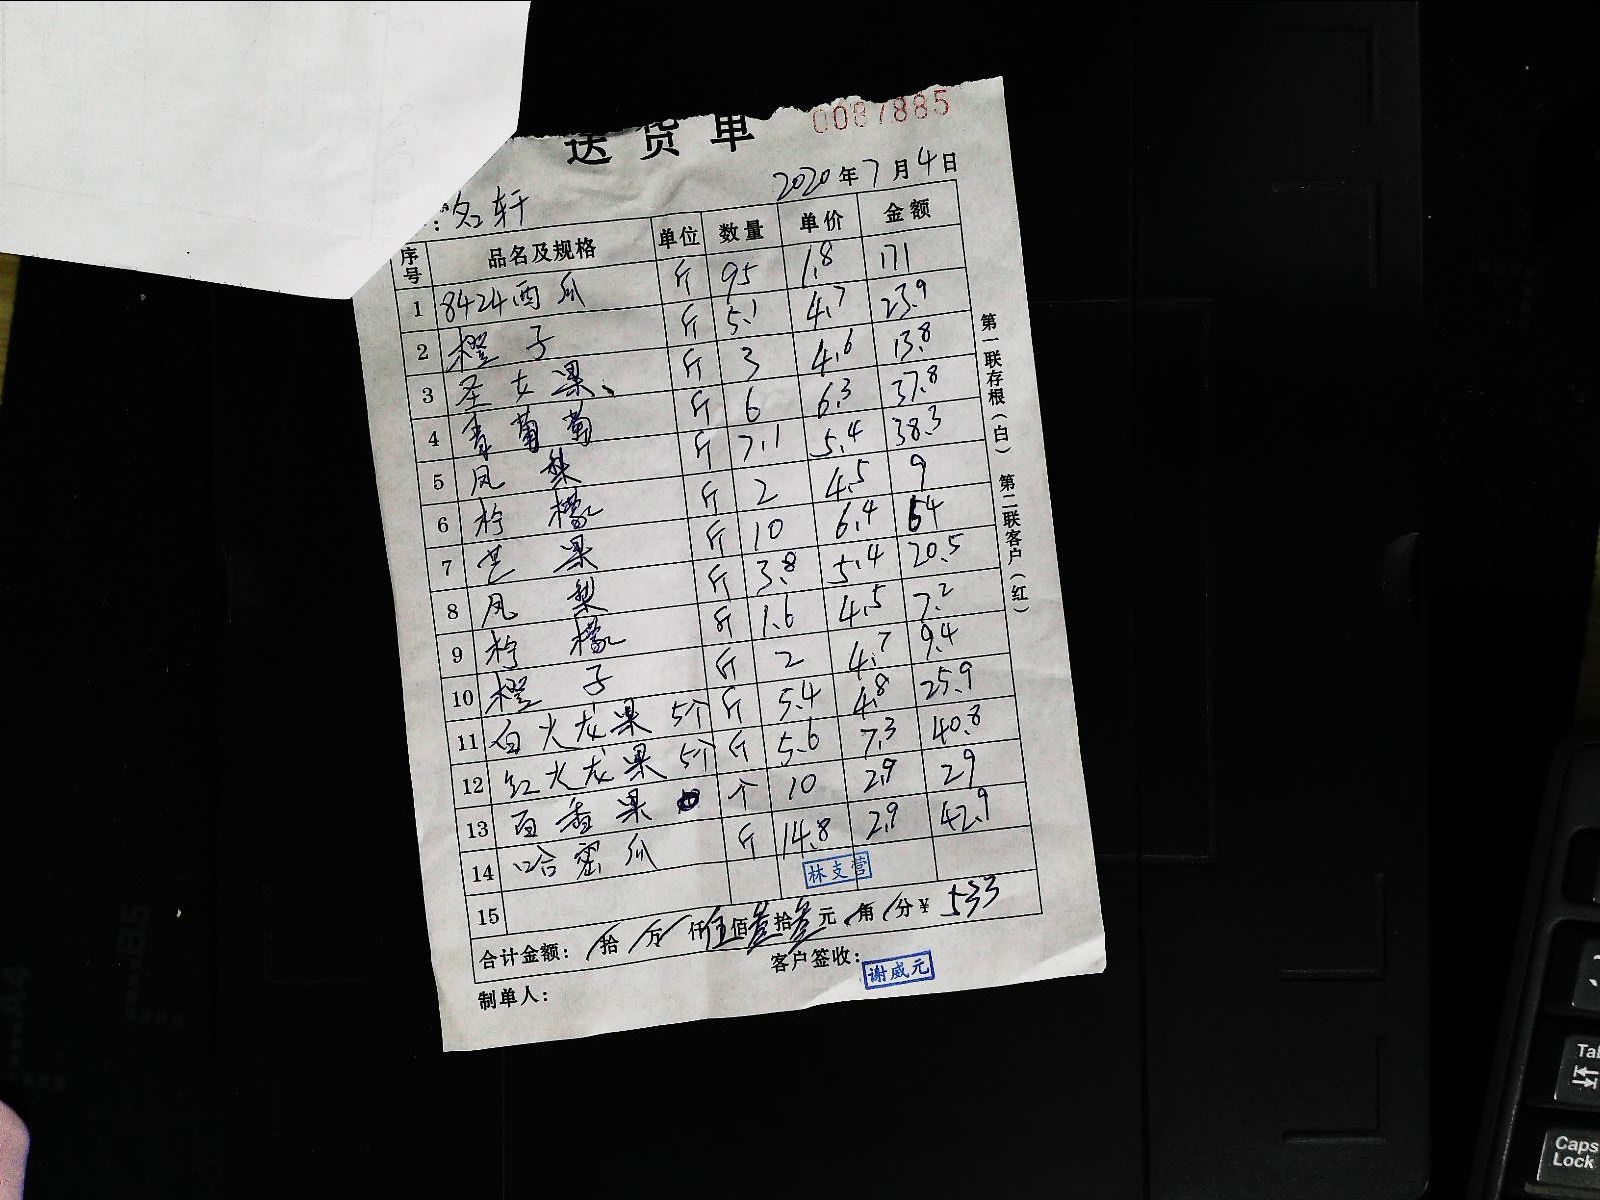 送货单 0087885
2020年7月4日
:名轩
序号 品名及规格 单位 数量 单价 金额
1 8424西瓜 斤 95 1.8 171
2 橙子 斤 5.1 4.7 23.9
3 圣女果、 斤 3 4.6 13.8
4 青葡萄 斤 6 6.3 37.8
5 凤梨 斤 7.1 5.4 38.3
6 柠檬 斤 2 4.5 9
7 芒果 斤 10 6.4 64
8 凤梨 斤 3.8 5.4 20.5
9 柠檬 斤 1.6 4.5 7.2
10 橙子 斤 2 4.7 9.4
11 白火龙果5个 斤 5.4 4.8 25.9
12 红火龙果5个 斤 5.6 7.3 40.8
13 百香果 个 10 2.9 29
14 哈密瓜 斤 14.8 2.9 42.9
15
林支营
合计金额: / 拾 / 万 / 仟 伍 佰 叁 拾 叁 元 / 角 / 分 ¥ 533
制单人: 客户签收: 谢威元
第一联存根(白) 第二联客户(红)
A4
B5
Tab
Caps Lock